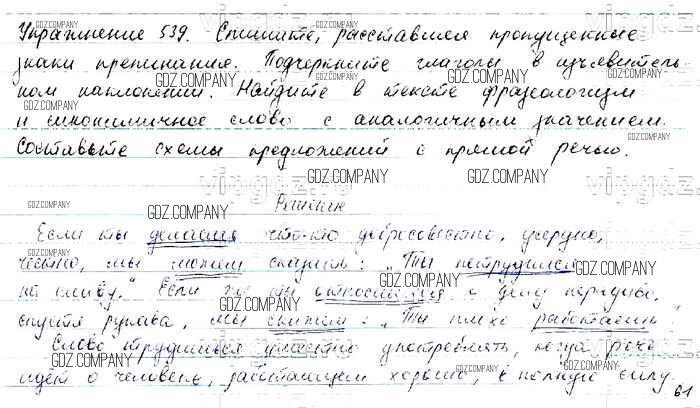 Упражнение 539. Спишите, расставляя пропущенные
знаки препинания. Подчеркните глаголы в изъявитель-
ном наклонении. Найдите в тексте фразеологизм
и синонимичное слово с аналогичным значением.
Составьте схемы предложений с прямой речью.
Решение
Если ты делаешь что-то добросовестно, усердно,
честно, мы можем сказать: „Ты потрудился
на славу." Если же ты относишься к делу нерадиво,
спустя рукава, мы скажем: „Ты плохо работаешь.
Слово трудишься уместно употреблять, когда речь
идёт о человеке, работающем хорошо, в полную силу.
61